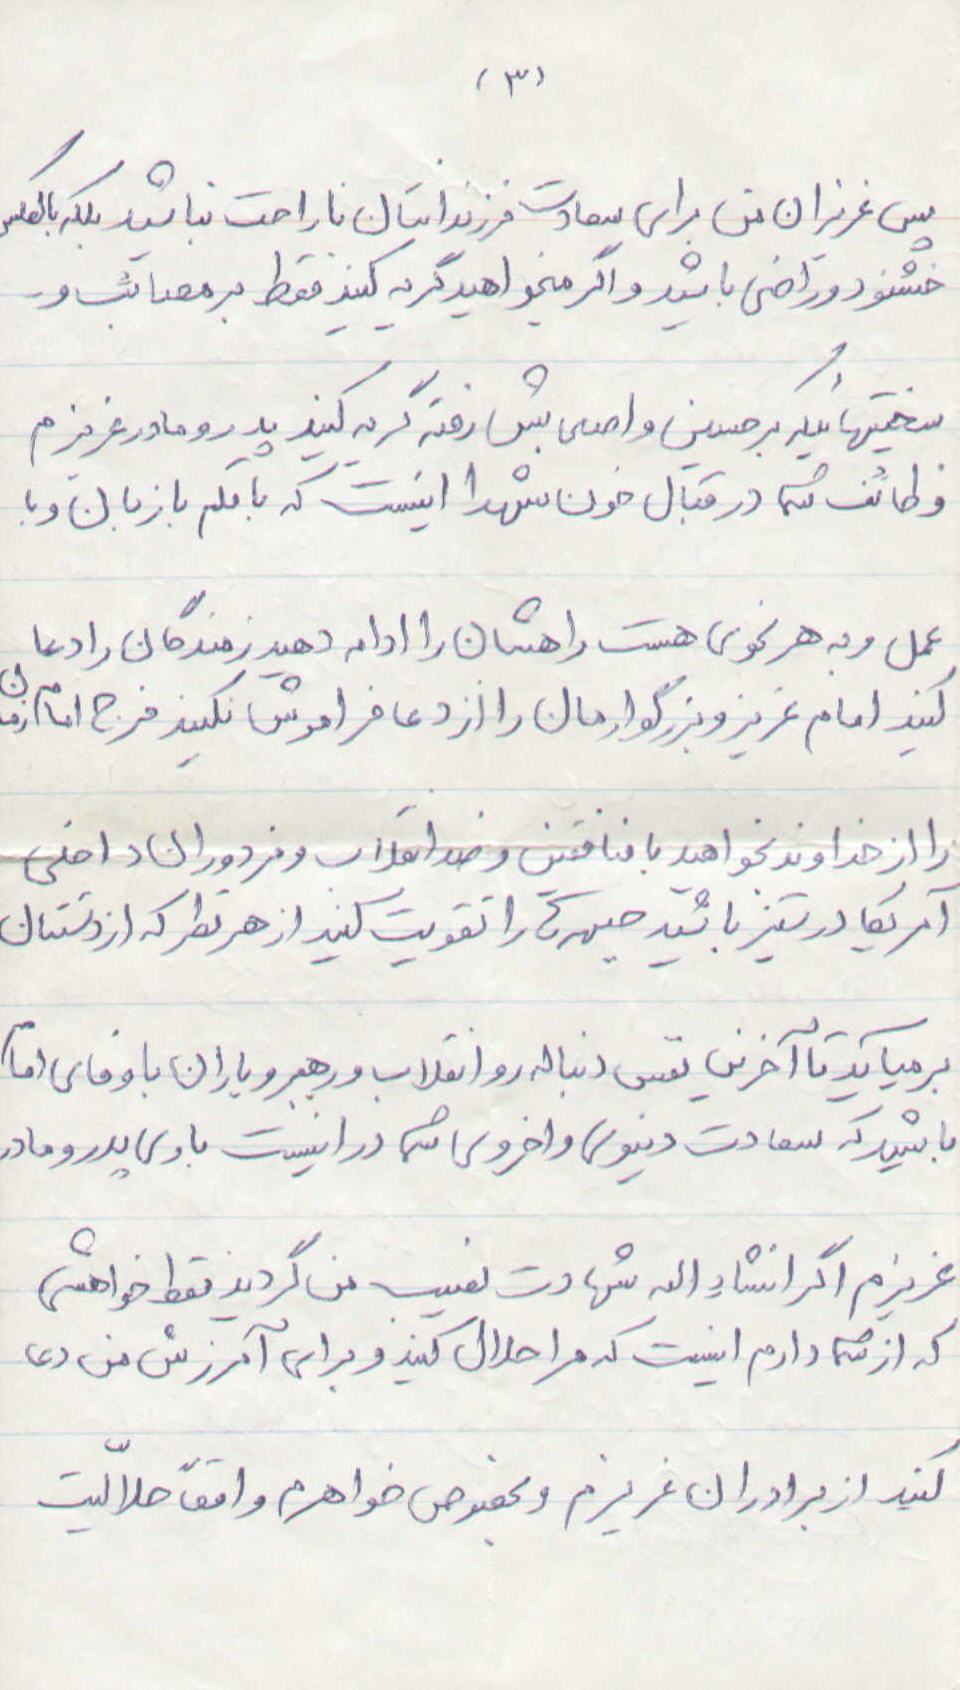 (۳)
پس عزیزان من برای سعادت فرزندانتان ناراحت نباشید بلکه بالعکس
خشنود و راضی باشید و اگر میخواهید گریه کنید فقط بر مصائب و
سختیهائیکه بر حسین و اصحابش رفته گریه کنید پدر و مادر عزیزم
وظائف شما در قبال خون شهدا اینست که با قلم با زبان و با
عمل و به هر نحوی هست راهشان را ادامه دهید رزمندگان را دعا
کنید امام عزیز و بزرگوارمان را از دعا فراموش نکنید فرج امام زمان
را از خداوند بخواهید با منافقین و ضد انقلاب و مزدوران داخلی
آمریکا در ستیز باشید جبهه ها را تقویت کنید از هر نظر که از دستتان
بر میآید تا آخرین نفس دنباله رو انقلاب و رهبر و یاران با وفای امام
باشید که سعادت دنیوی و اخروی شما در اینست باری پدر و مادر
عزیزم اگر انشاء اله شهادت نصیب من گردید فقط خواهشی
که از شما دارم اینست که مرا حلال کنید و برای آمرزش من دعا
کنید از برادران عزیزم و بخصوص خواهرم واقعاً حلالیت